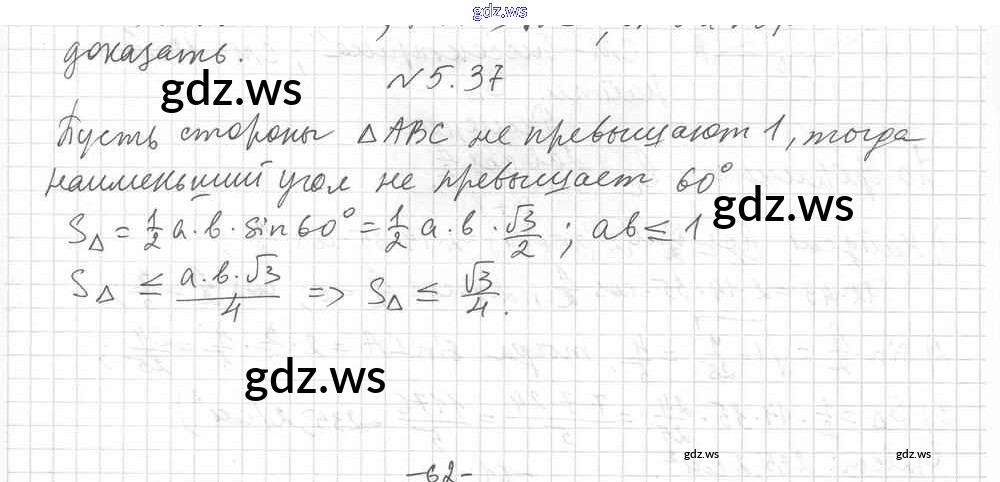 gdz.ws
доказать.
gdz.ws
№ 5.37
Пусть стороны △ABC не превышают 1, тогда
наименьший угол не превышает 60°
gdz.ws
S△ = 1/2 a·b·sin60° = 1/2 a·b·√3/2; ab ≤ 1
S△ ≤ a·b·√3/4 => S△ ≤ √3/4.
gdz.ws
gdz.ws
gdz.ws
-62-